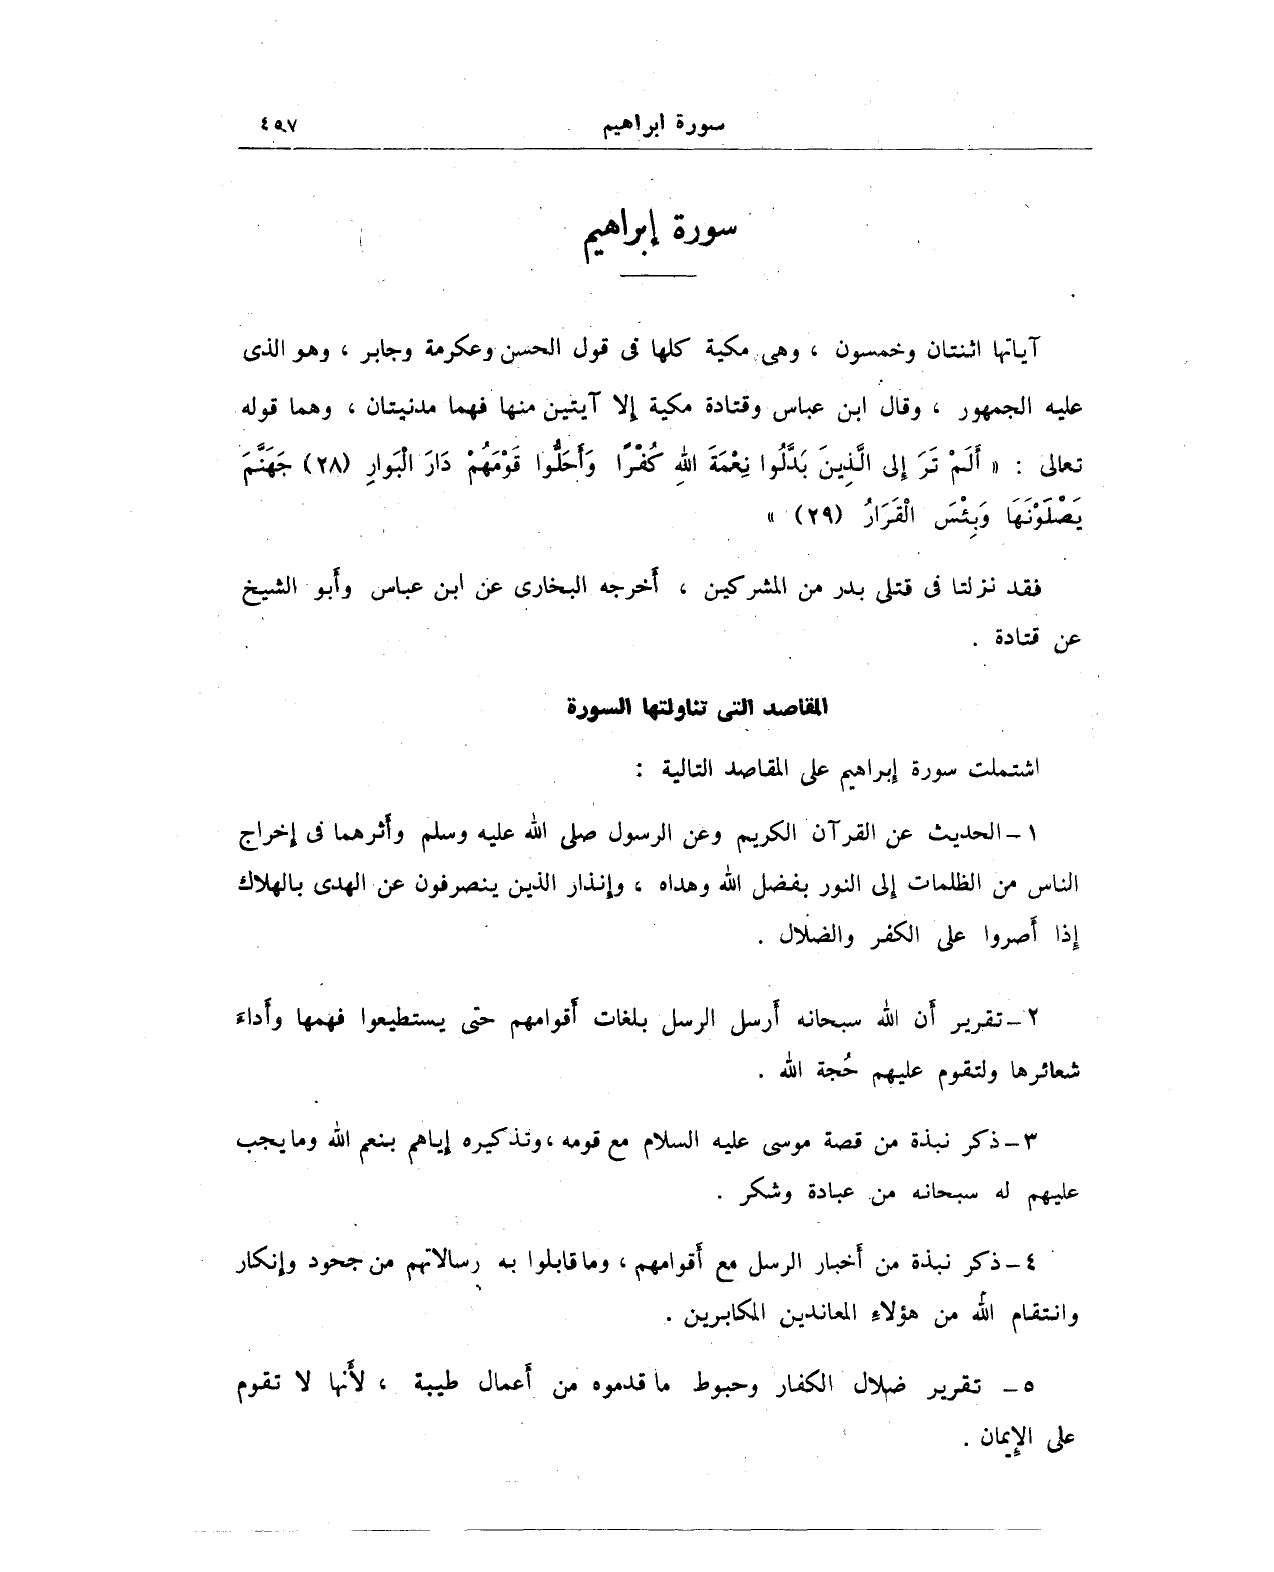 سورة ابراهيم ٤٩٧
سورة إبراهيم
آياتها اثنتان وخمسون ، وهى مكية كلها فى قول الحسن وعكرمة وجابر ، وهو الذى
عليه الجمهور ، وقال ابن عباس وقتادة مكية إلا آيتين منها فهما مدنيتان ، وهما قوله
تعالى : « أَلَمْ تَرَ إِلى الَّذِينَ بَدَّلُوا نِعْمَةَ اللهِ كُفْرًا وَأَحَلُّوا قَوْمَهُمْ دَارَ الْبَوارِ (٢٨) جَهَنَّمَ
يَصْلَوْنَهَا وَبِئْسَ الْقَرَارُ (٢٩) »
فقد نزلتا فى قتلى بدر من المشركين ، أخرجه البخارى عن ابن عباس وأبو الشيخ
عن قتادة .
المقاصد التى تناولتها السورة
اشتملت سورة إبراهيم على المقاصد التالية :
١ - الحديث عن القرآن الكريم وعن الرسول صلى الله عليه وسلم وأثرهما فى إخراج
الناس من الظلمات إلى النور بفضل الله وهداه ، وإنذار الذين ينصرفون عن الهدى بالهلاك
إذا أصروا على الكفر والضلال .
٢ - تقرير أن الله سبحانه أرسل الرسل بلغات أقوامهم حتى يستطيعوا فهمها وأداءَ
شعائرها ولتقوم عليهم حُجة الله .
٣ - ذكر نبذة من قصة موسى عليه السلام مع قومه ، وتذكيره إياهم بنعم الله وما يجب
عليهم له سبحانه من عبادة وشكر .
٤ - ذكر نبذة من أخبار الرسل مع أقوامهم ، وما قابلوا به رسالاتهم من جحود وإنكار
وانتقام اللهُ من هؤلاءِ المعاندين المكابرين .
٥ - تقرير ضلال الكفار وحبوط ما قدموه من أعمال طيبة ، لأنها لا تقوم
على الإيمان .